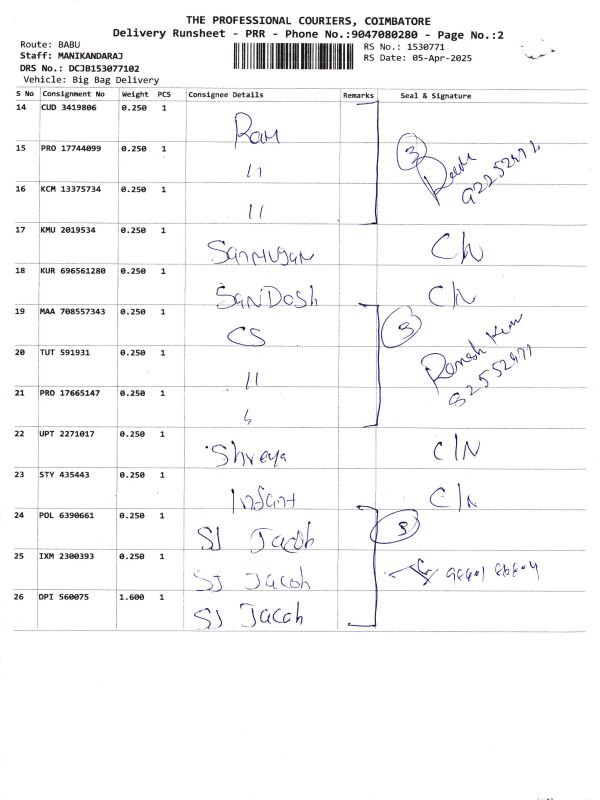 THE PROFESSIONAL COURIERS, COIMBATORE
Delivery Runsheet - PRR - Phone No.:9047080280 - Page No.:2
Route: BABU
Staff: MANIKANDARAJ
DRS No.: DCJB153077102
Vehicle: Big Bag Delivery
RS No.: 1530771
RS Date: 05-Apr-2025
S No Consignment No Weight PCS Consignee Details Remarks Seal & Signature
14 CUD 3419806 0.250 1 Ram
15 PRO 17744099 0.250 1 11 3
16 KCM 13375734 0.250 1 11
17 KMU 2019534 0.250 1 Sanmugam
18 KUR 696561280 0.250 1 SanDosh
19 MAA 708557343 0.250 1 CS 3
20 TUT 591931 0.250 1 11
21 PRO 17665147 0.250 1
22 UPT 2271017 0.250 1 Shreya C/N
23 STY 435443 0.250 1 C/N
24 POL 6390661 0.250 1 SJ Jacob
25 IXM 2300393 0.250 1 SJ Jacob
26 DPI 560075 1.600 1 SJ Jacob